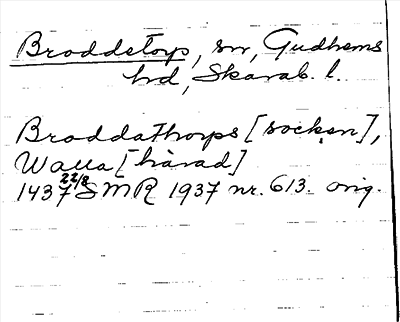 Broddetorp, sn, Gudhems
hd, Skarab. l.
Broddathorps [socken],
Walla [härad]
1437 22/8 SMR 1937 nr. 613. orig.